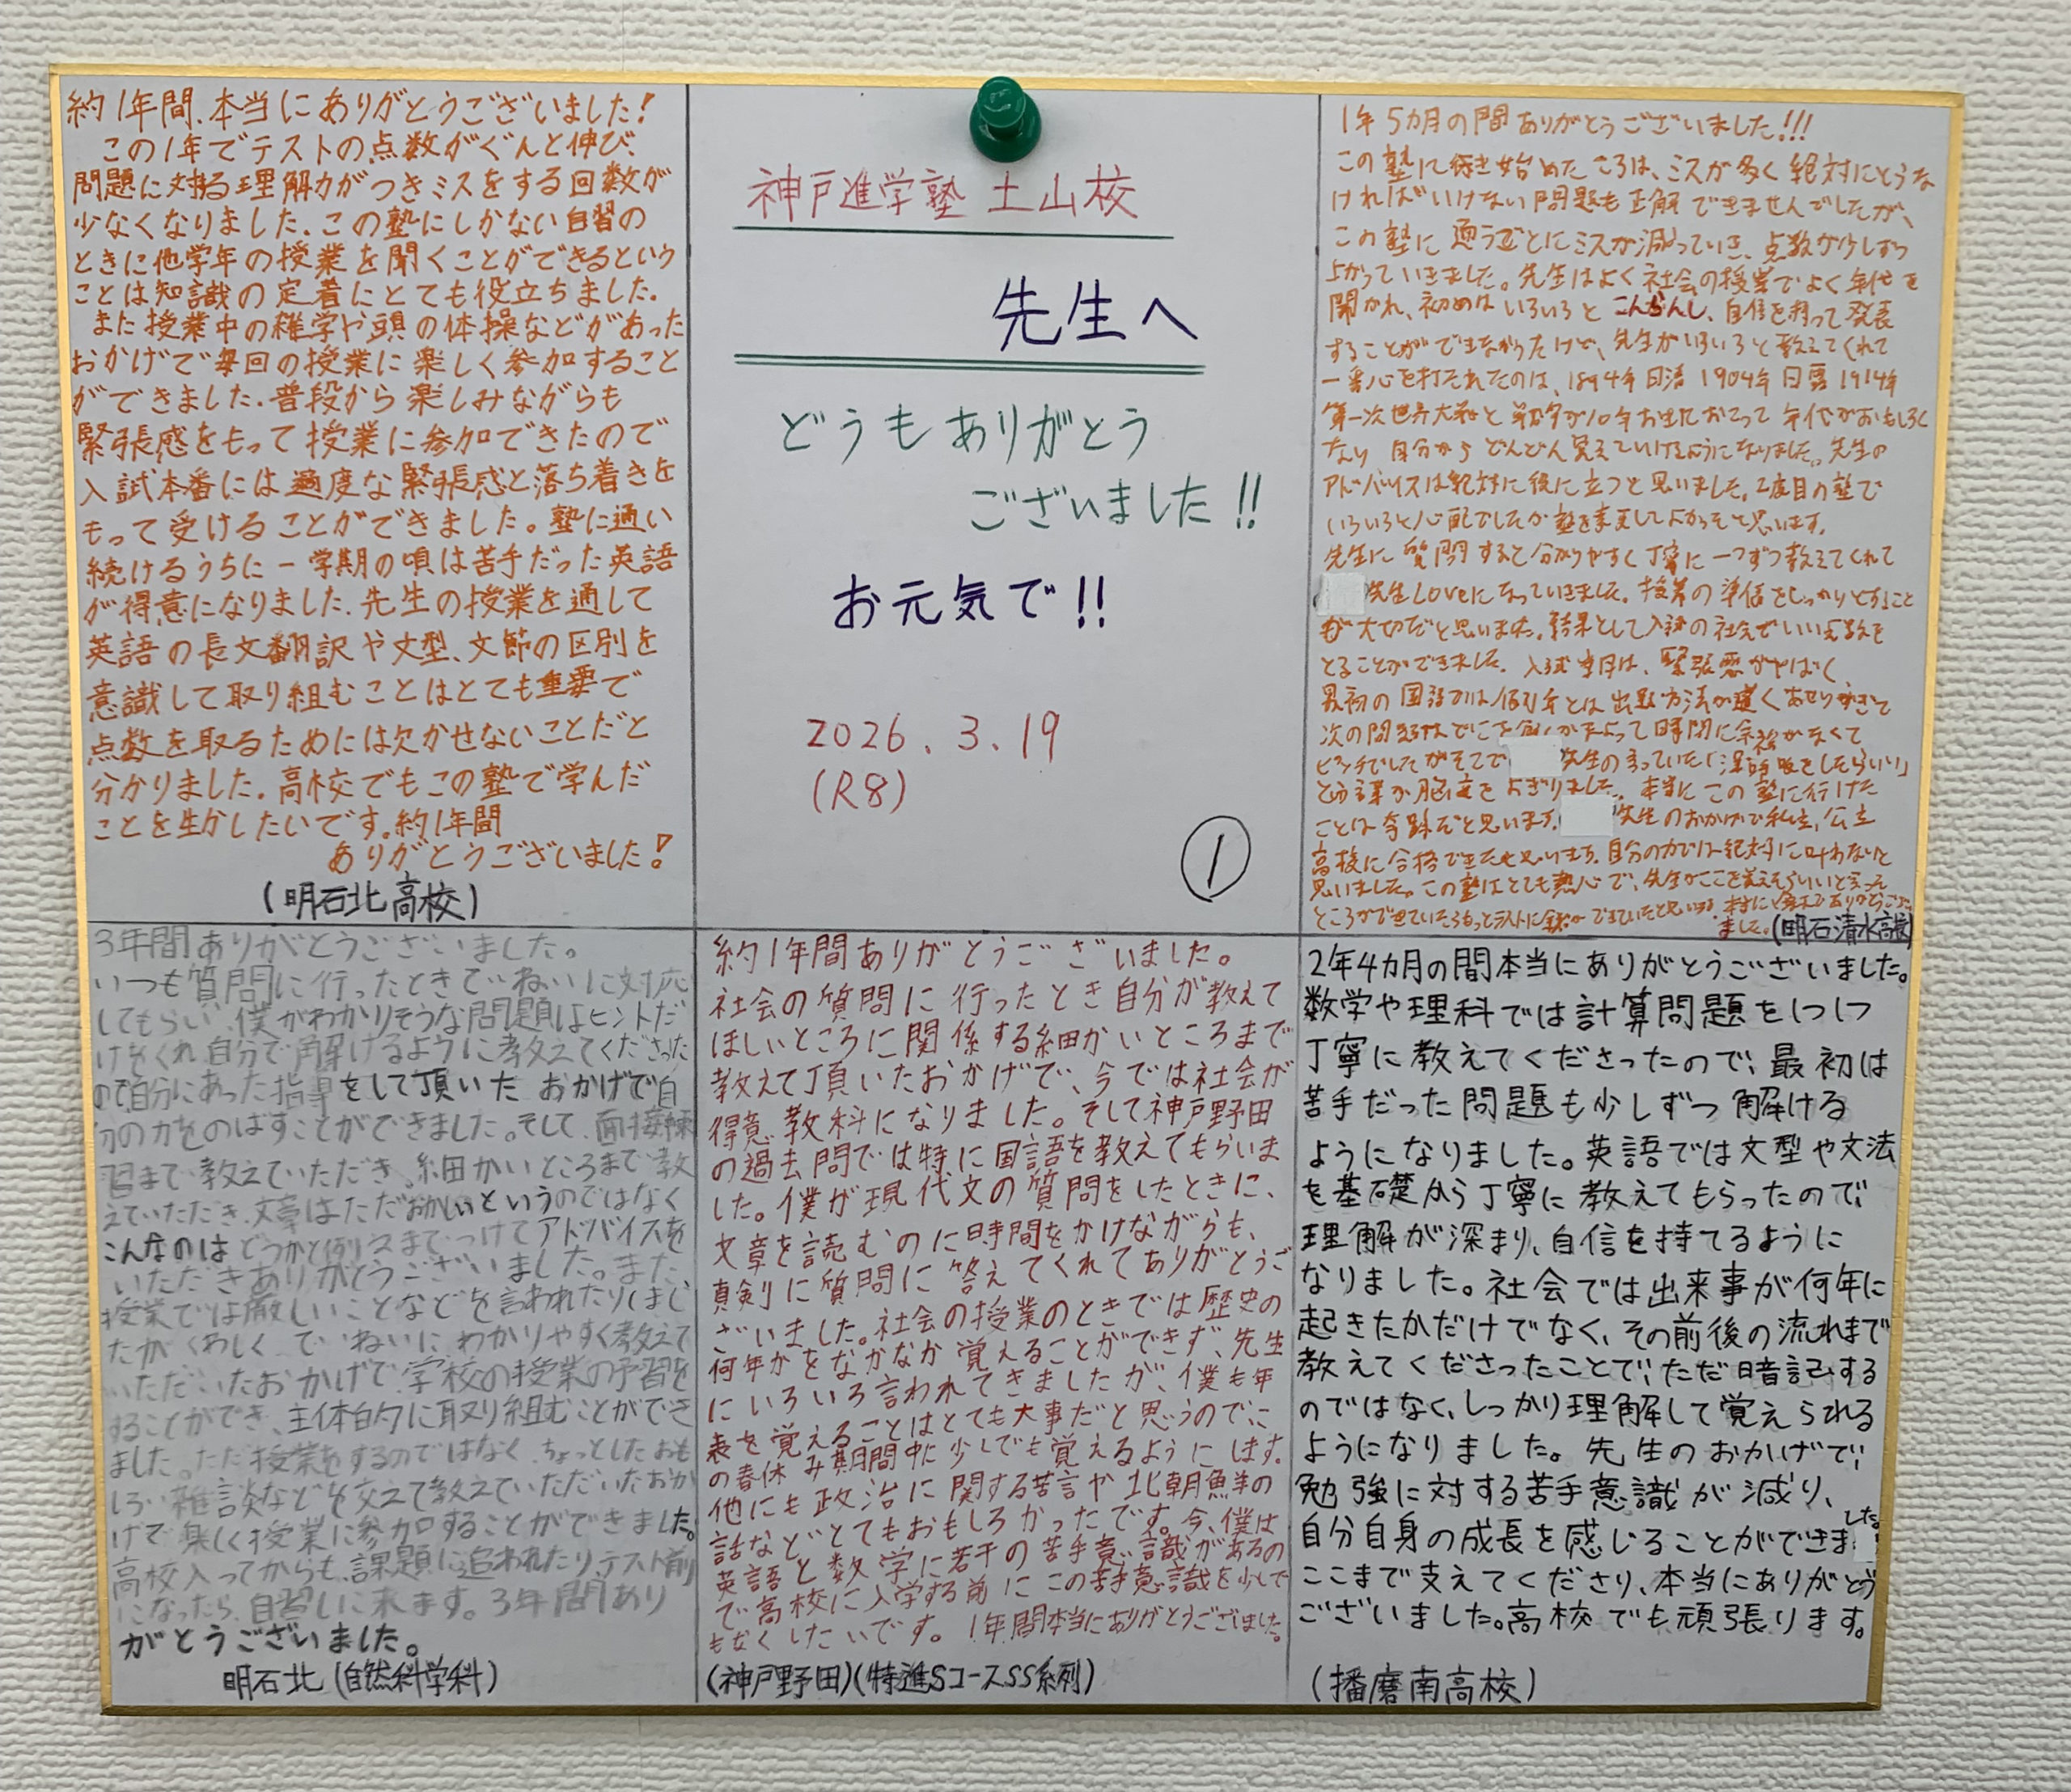 約1年間、本当にありがとうございました!
この1年でテストの点数がぐんと伸び、
問題に対する理解力がつきミスをする回数が
少なくなりました。この塾にしかない自習の
ときに他学年の授業を聞くことができるという
ことは知識の定着にとても役立ちました。
また授業中の雑学や頭の体操などがあった
おかげで毎回の授業に楽しく参加すること
ができました。普段から楽しみながらも
緊張感をもって授業に参加できたので
入試本番には適度な緊張感と落ち着きを
もって受けることができました。塾に通い
続けるうちに一学期の頃は苦手だった英語
が得意になりました。先生の授業を通して
英語の長文翻訳や文型、文節の区別を
意識して取り組むことはとても重要で
点数を取るためには欠かせないことだと
分かりました。高校でもこの塾で学んだ
ことを生かしたいです。約1年間
ありがとうございました!
(明石北高校)
神戸進学塾 土山校
先生へ
どうもありがとう
ございました!!
お元気で!!
2026.3.19
(R8)
①
1年5カ月の間ありがとうございました!!!
この塾に行き始めたころは、ミスが多く絶対にとらな
ければいけない問題も正解できませんでしたが、
この塾に通うごとにミスが減っていき、点数が少しずつ
上がっていきました。先生はよく社会の授業でよく年代を
聞かれ、初めはいろいろとこんらんし、自信を持って発表
することができなかったけど、先生がいろいろと教えてくれて
一番心を打たれたのは、1894年日清1904年日露1914年
第一次世界大戦と戦争が10年お生におこって年代がおもしろく
なり自分からどんどん覚えていけるようになりました。先生の
アドバイスは絶対に役に立つと思いました。2度目の塾で
いろいろと心配でしたが塾を変更してよかったと思います。
先生に質問すると分かりやすく丁寧に一つずつ教えてくれて
先生Loveになっていきました。授業の準備をしっかりとすること
が大切だと思いました。結果として入試の社会でいい点数を
とることができました。入試当日は、緊張感がやばく、
最初の国語では例年とは出題方法が違くあせりすぎて
次の問題 時間に余裕がなくて
ピンチでしたがそこで 先生の言っていた「深呼吸をしたらいい」
という言葉が脳裏をよぎりました。本当にこの塾に行けた
ことは奇跡だと思います。 先生のおかげで私立、公立
高校に合格できたと思います。自分の力では絶対に叶わないと
思いました。この塾はとても熱心で、先生がここを覚えたらいいと言った
ところが
ました。(明石清水高校)
3年間ありがとうございました。
いつも質問に行ったときていねいに対応
してもらい、僕がわかりそうな問題はヒントだ
けをくれ自分で解けるように教えてくださった
ので自分にあった指導をして頂いたおかげで自
分の力をのばすことができました。そして、面接練
習まで教えていただき、細かいところまで教
えていただき、文章はただおかしいというのではなく
こんなのはどうかと例文までつけてアドバイスを
いただきありがとうございました。また、
授業では厳しいことなどを言われたりしまし
たがくわしくていねいにわかりやすく教えて
いただいたおかげで学校の授業の予習を
することができ、主体的に取り組むことができ
ました。ただ授業をするのではなくちょっとしたおも
しろい雑談などを交えて教えていただいたおか
げで楽しく授業に参加することができました。
高校入ってからも、課題に追われたり、テスト前
になったら、自習しに来ます。3年間あり
がとうございました。
明石北(自然科学科)
約1年間ありがとうございました。
社会の質問に行ったとき自分が教えて
ほしいところに関係する細かいところまで
教えて頂いたおかげで、今では社会が
得意教科になりました。そして神戸野田
の過去問では特に国語を教えてもらいま
した。僕が現代文の質問をしたときに、
文章を読むのに時間をかけながらも、
真剣に質問に答えてくれてありがとうご
ざいました。社会の授業のときでは歴史の
何年かをなかなか覚えることができず、先生
にいろいろ言われてきましたが、僕も年
表を覚えることはとても大事だと思うので、こ
の春休み期間中に少しでも覚えるようにします。
他にも政治に関する苦言や北朝鮮の
話などとてもおもしろかったです。今、僕は
英語と数学に若干の苦手意識があるの
で高校に入学する前にこの苦手意識を少しで
もなくしたいです。1年間本当にありがとうございました。
(神戸野田)(特進SコースSS系列)
2年4カ月の間本当にありがとうございました。
数学や理科では計算問題を1つ1つ
丁寧に教えてくださったので、最初は
苦手だった問題も少しずつ解ける
ようになりました。英語では文型や文法
を基礎から丁寧に教えてもらったので、
理解が深まり、自信を持てるように
なりました。社会では出来事が何年に
起きたかだけでなく、その前後の流れまで
教えてくださったことで、ただ暗記する
のではなく、しっかり理解して覚えられる
ようになりました。先生のおかげで、
勉強に対する苦手意識が減り、
自分自身の成長を感じることができました。
ここまで支えてくださり、本当にありがとう
ございました。高校でも頑張ります。
(播磨南高校)